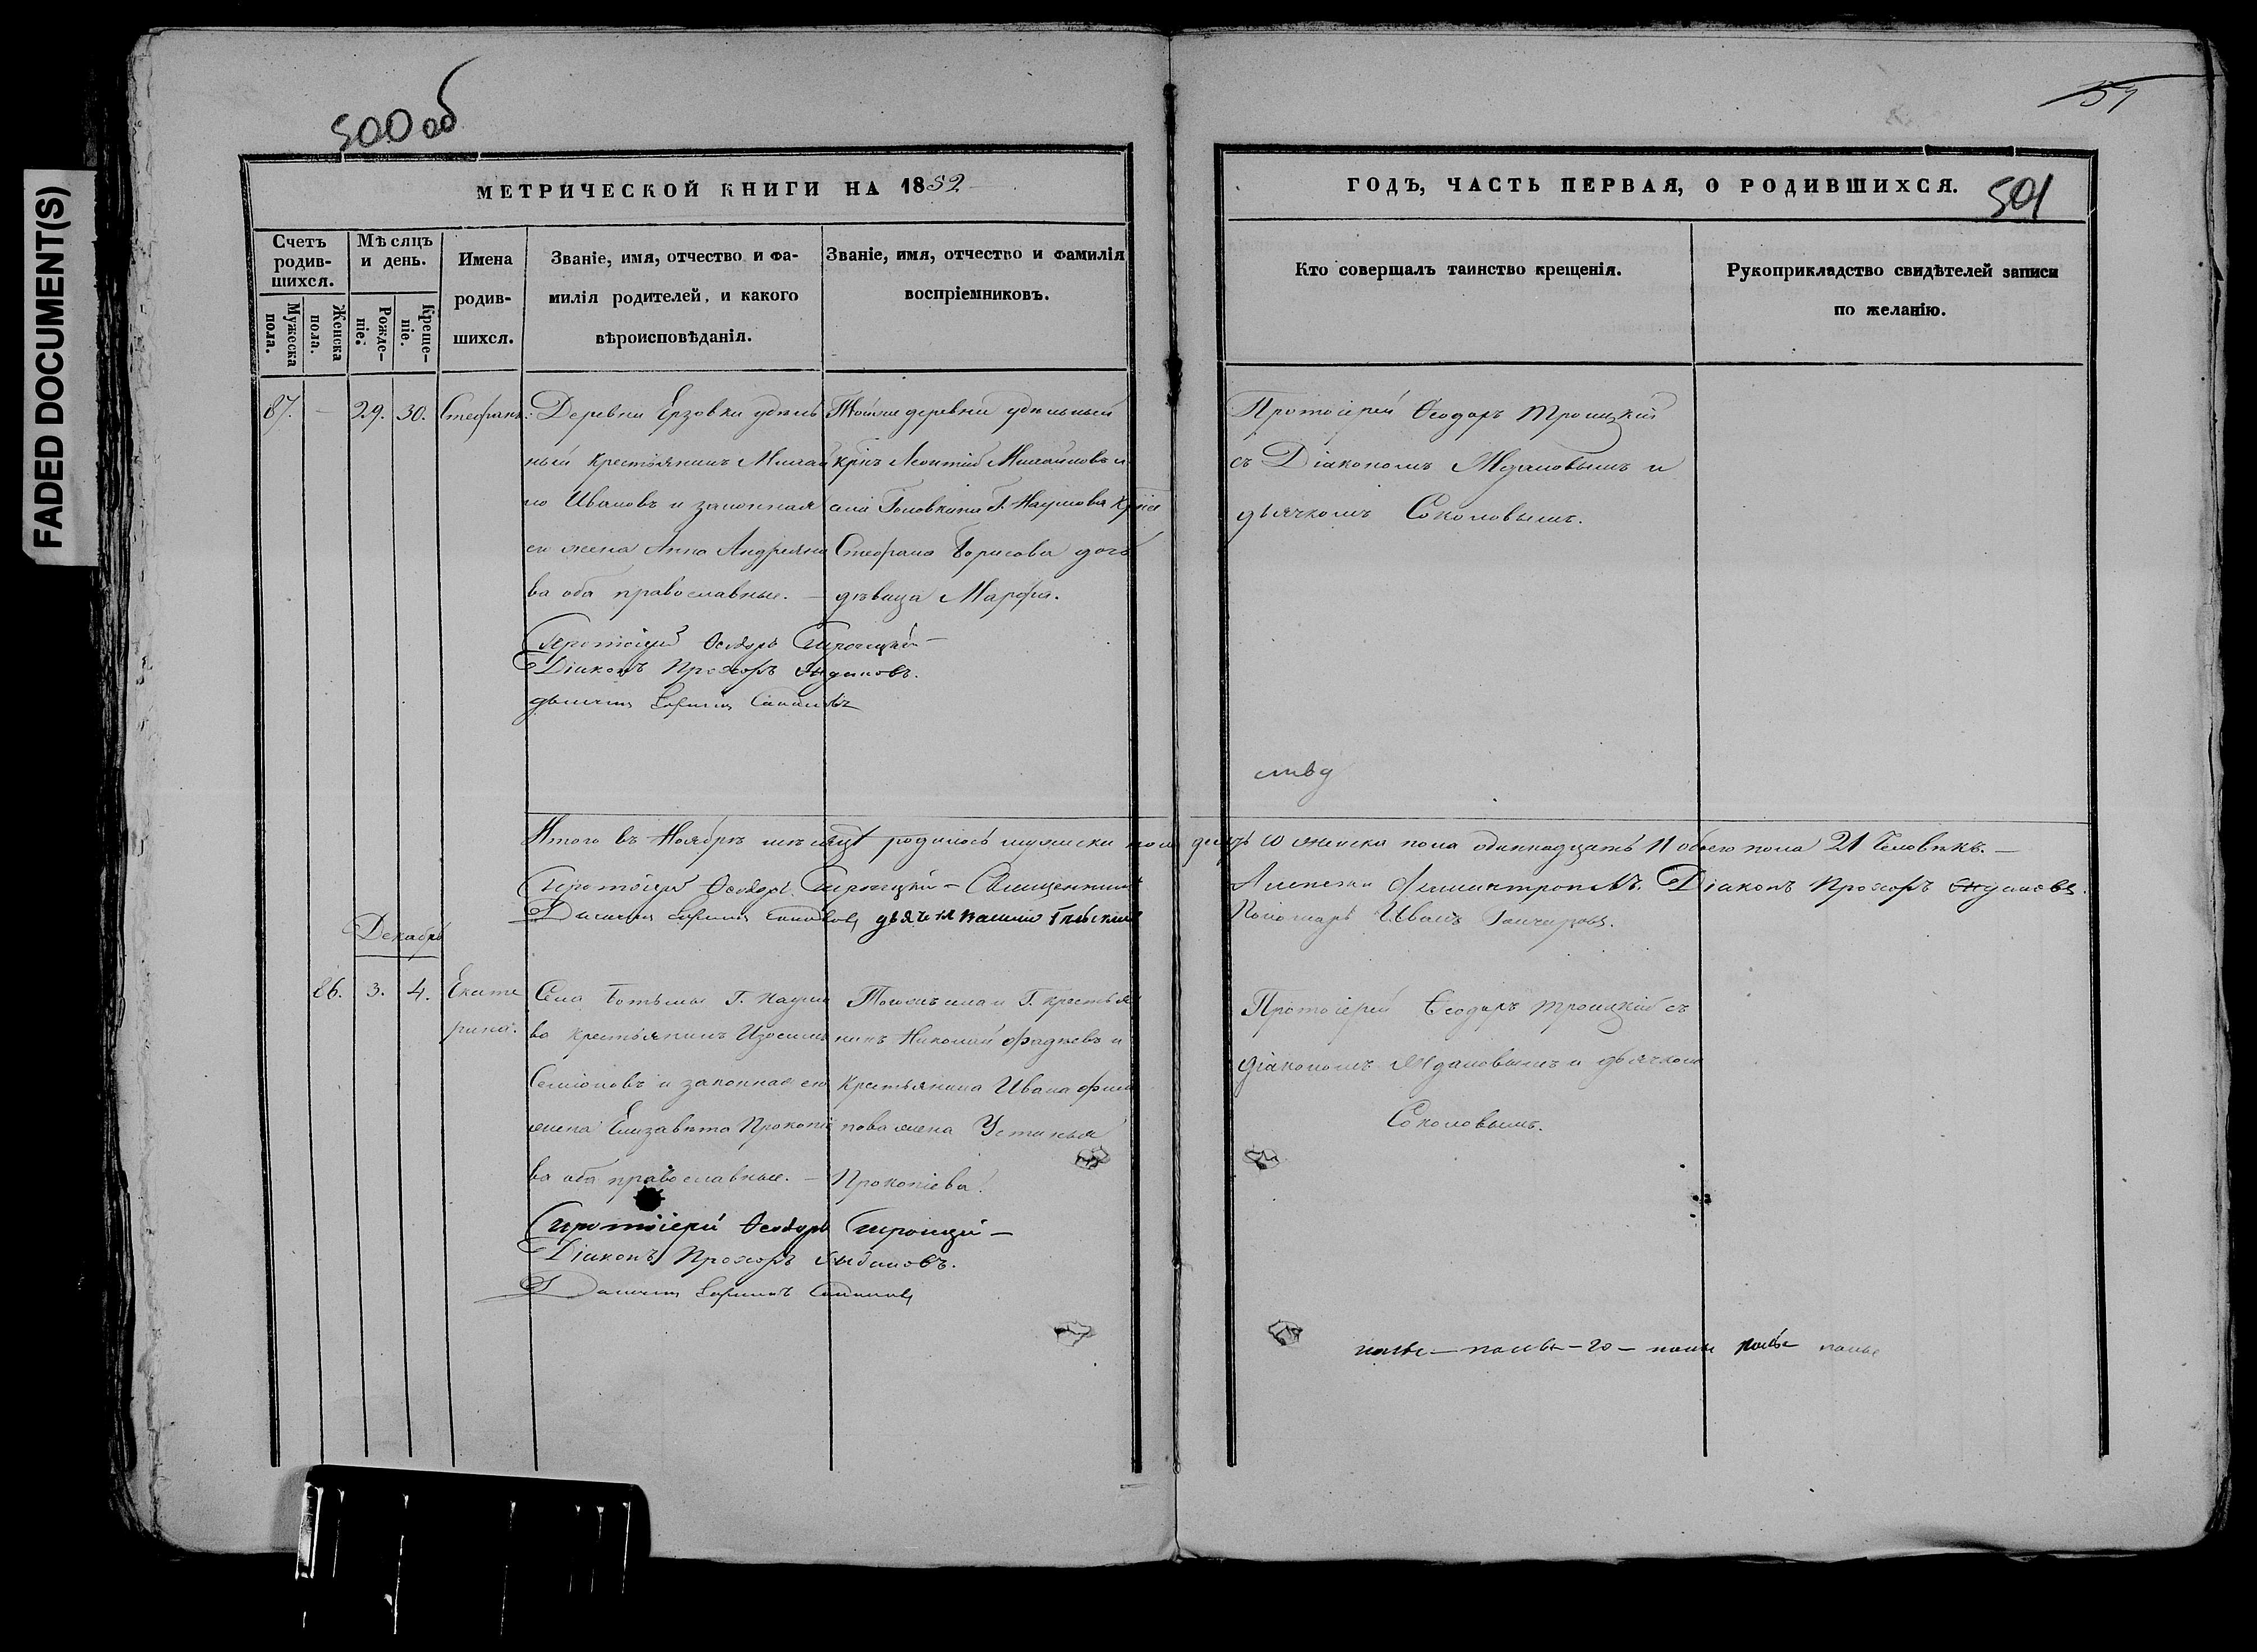 FADED DOCUMENT(S)
500 об
51
МЕТРИЧЕСКОЙ КНИГИ НА 1852
ГОДЪ, ЧАСТЬ ПЕРВАЯ, О РОДИВШИХСЯ.
501
Счетъ родив- шихся.
Мужеска пола.
Женска пола.
Мѣсяцъ и день.
Рожде- ніе.
Креще- ніе.
Имена родив- шихся.
Званіе, имя, отчество и фа-
милія родителей, и какого
вѣроисповѣданія.
Званіе, имя, отчество и фамилія
воспріемниковъ.
Кто совершалъ таинство крещенія.
Рукоприкладство свидѣтелей записи
по желанію.
87. - 29. 30. Стефанъ.
Деревни Ерзовки удѣль
ный крестьянинъ Михай
ло Ивановъ и законная
его жена Анна Андреяно
ва оба православные. —
Тойже деревни удѣльный
крнъ Леонтій Михайловъ и
села Головкина Г. Наумова
Стефана Борисова дочь
дѣвица Марфа.
Протоіерей Ѳеодоръ Троицкій
съ Діакономъ и
дьячкомъ Соколовымъ.
Протоіерей Ѳеодоръ Троицкій —
Діаконъ Прохоръ
Итого въ Ноябрѣ мѣсяцѣ родилось мужеска пола десять 10 женска пола одиннадцать 11 обоего пола 21 человѣкъ. —
Протоіерей Ѳеодоръ Троицкій — Священникъ
Алексей Филантроповъ. Діаконъ Прохоръ
Пономарь Иванъ
Декабрь
86. 3. 4. Екате
рина.
Села Ботьмы Г. Наумо
ва крестьянинъ Изосимъ
Семіоновъ и законная его
жена Елизавета Прокопіе
ва оба православные. —
Тогожъ села и Г. крестья
нинъ Николай Фадѣевъ и
крестьянина Ивана Фили
пова жена Устинья
Прокопіева.
Протоіерей Ѳеодоръ Троицкій съ
діакономъ и дьячкомъ
Соколовымъ.
Протоіерей Ѳеодоръ Троицкій —
Діаконъ Прохоръ